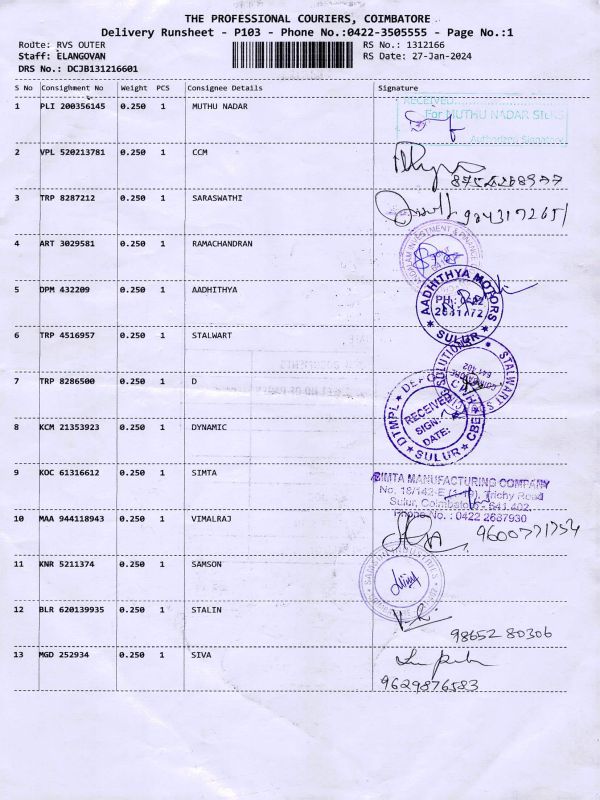 THE PROFESSIONAL COURIERS, COIMBATORE
Delivery Runsheet - P103 - Phone No.:0422-3505555 - Page No.:1
Route: RVS OUTER RS No.: 1312166
Staff: ELANGOVAN RS Date: 27-Jan-2024
DRS No.: DCJB131216601
S No Consighment No Weight PCS Consignee Details Signature
1 PLI 200356145 0.250 1 MUTHU NADAR
RECEIVED
For MUTHU NADAR SILKS
Authorised Signatory
2 VPL 520213781 0.250 1 CCM
3 TRP 8287212 0.250 1 SARASWATHI
4 ART 3029581 0.250 1 RAMACHANDRAN
INVESTMENT & FINANCE
5 DPM 432209 0.250 1 AADHITHYA
AADHITHYA MOTORS
PH: 0422
SULUR
6 TRP 4516957 0.250 1 STALWART
STALWART SOLUTION
COIMBATORE
641 402
7 TRP 8286500 0.250 1 D
DTMPL
RECEIVED
SIGN:
DATE:
SULUR CBE
8 KCM 21353923 0.250 1 DYNAMIC
9 KOC 61316612 0.250 1 SIMTA
SIMTA MANUFACTURING COMPANY
Trichy Road
Sulur, Coimbatore - 641 402.
Phone No. : 0422 2687930
10 MAA 944118943 0.250 1 VIMALRAJ
11 KNR 5211374 0.250 1 SAMSON
12 BLR 620139935 0.250 1 STALIN
98652 80306
13 MGD 252934 0.250 1 SIVA
9629876583